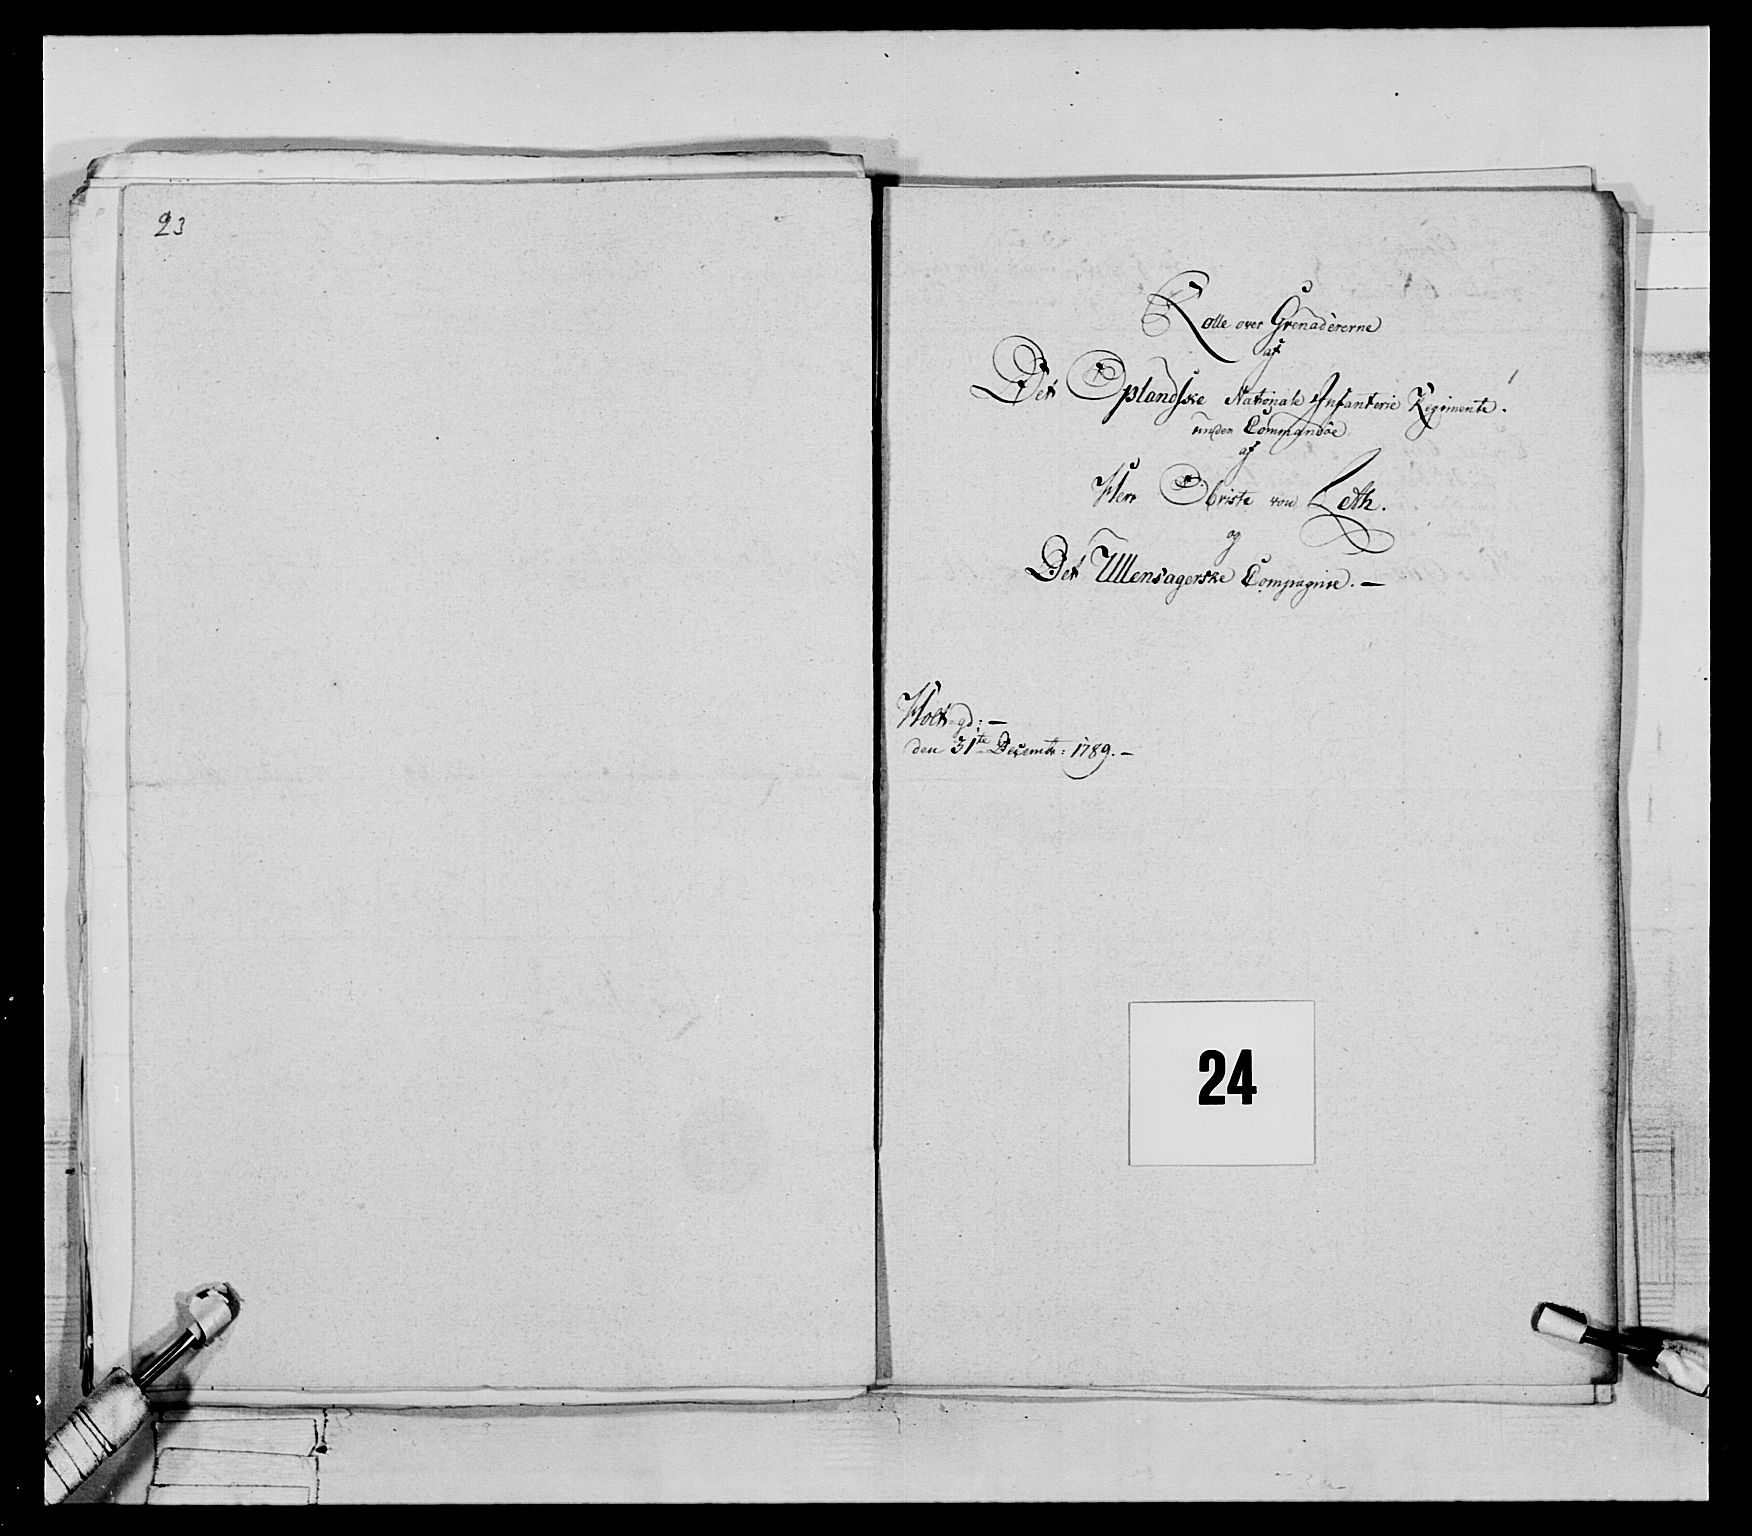 23
Rolle over Grenadererne
af
Det Oplandske Nationale Infanterie Regimente.
under Commandoe
af
Herr Obriste von Leth.
og
Det Ullensagerske Compagnie. —
Holt-gd: —
den 31te Decembr: 1789. —
24